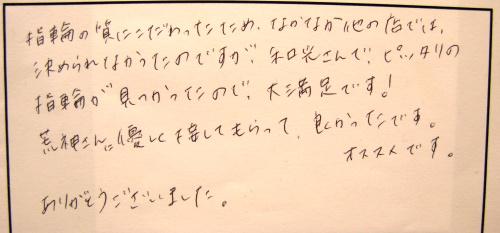 指輪の質にこだわったため、なかなか他の店では、
決められなかったのですが、和光さんで、ピッタリの
指輪が見つかったので、大満足です!
荒神さんに優しく接してもらって、良かったです。
オススメです。
ありがとうございました。